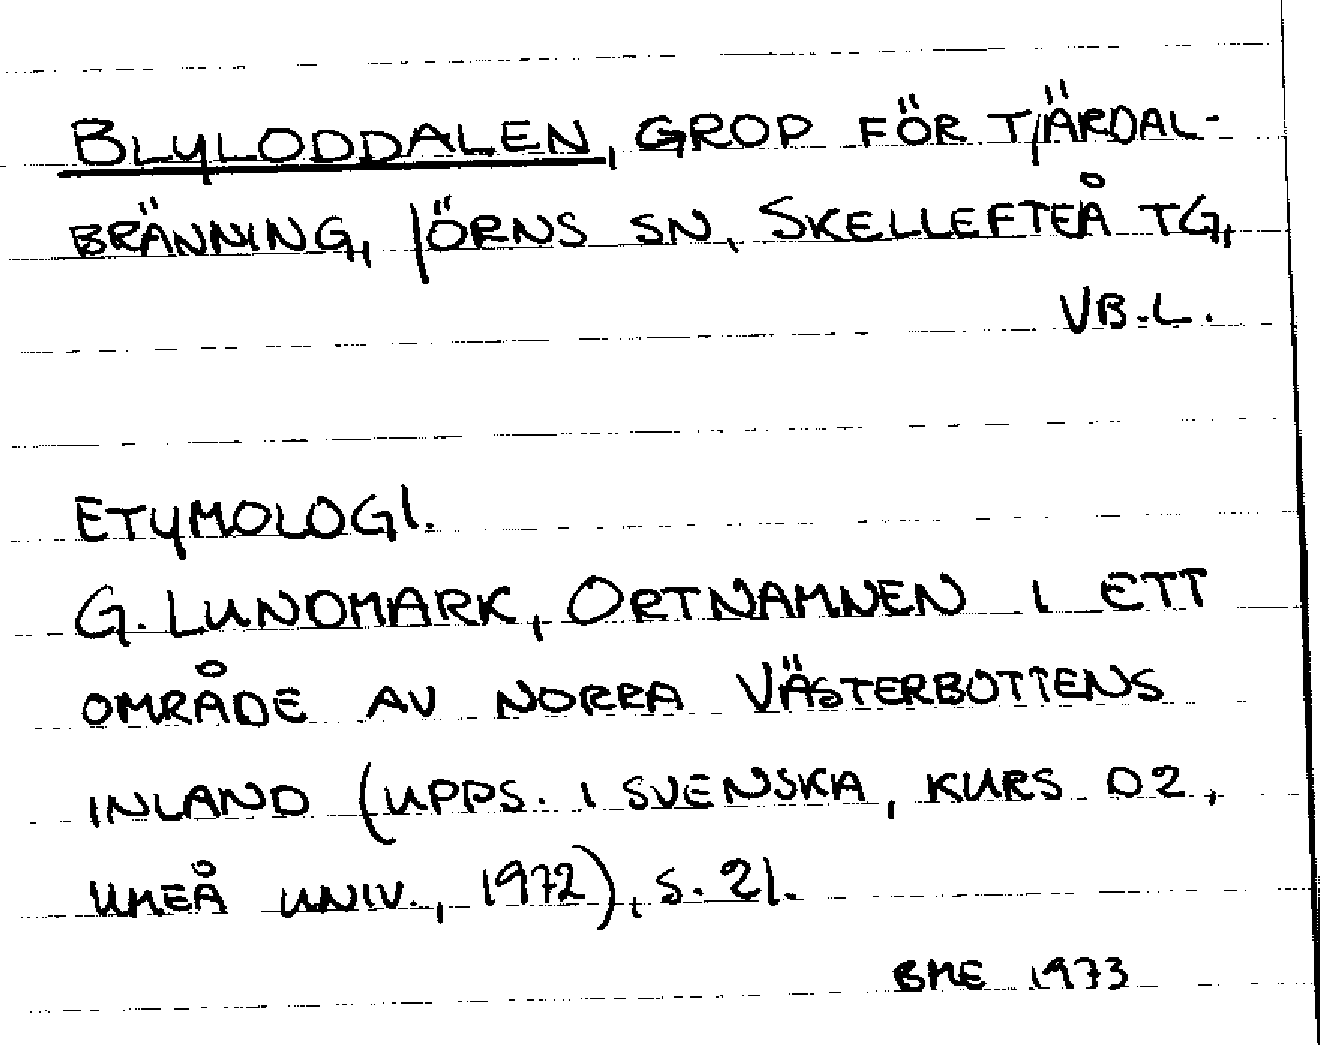 BLYLODDALEN, GROP FÖR TJÄRDAL-
BRÄNNING, JÖRNS SN, SKELLEFTEÅ TG,
VB.L.
ETYMOLOGI.
G. LUNDMARK, ORTNAMNEN I ETT
OMRÅDE AV NORRA VÄSTERBOTTENS
INLAND (UPPS. I SVENSKA, KURS D2,
UMEÅ UNIV., 1972), S. 21.
BME 1973